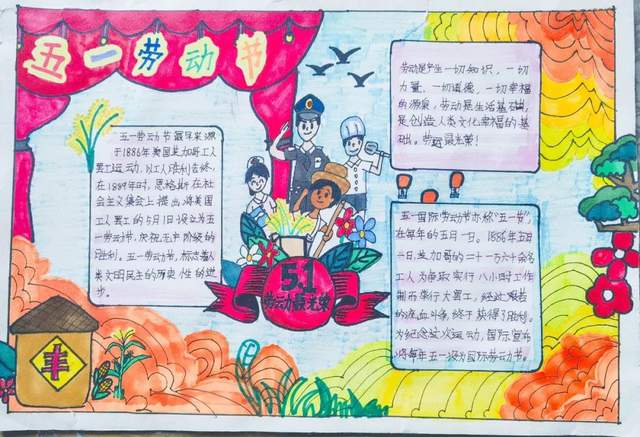 五一劳动节
五一劳动节最早来源
于1886年美国芝加哥工人
罢工运动,以工人胜利告终,
在1889年时,恩格斯在社
会主义集会上提出将美国
工人罢工的5月1日设立为五
一劳动节,庆祝无产阶级的
胜利。五一劳动节,标志着人
类文明民主的历史性的进
步。
劳动是产生一切知识,一切
力量、一切道德、一切幸福
的源泉,劳动是生活基础,
是创造人类文化幸福的基
础。劳动最光荣!
五一国际劳动节亦称"五一节",
在每年的五月一日。1886年五月
一日,芝加哥的二十一万六千余名
工人为争取实行八小时工作
制而举行大罢工,经过艰苦
的流血斗争,终于获得了胜利。
为纪念这次运动,国际宣布
将每年五一设为国际劳动节。
5.1
劳动最光荣
丰